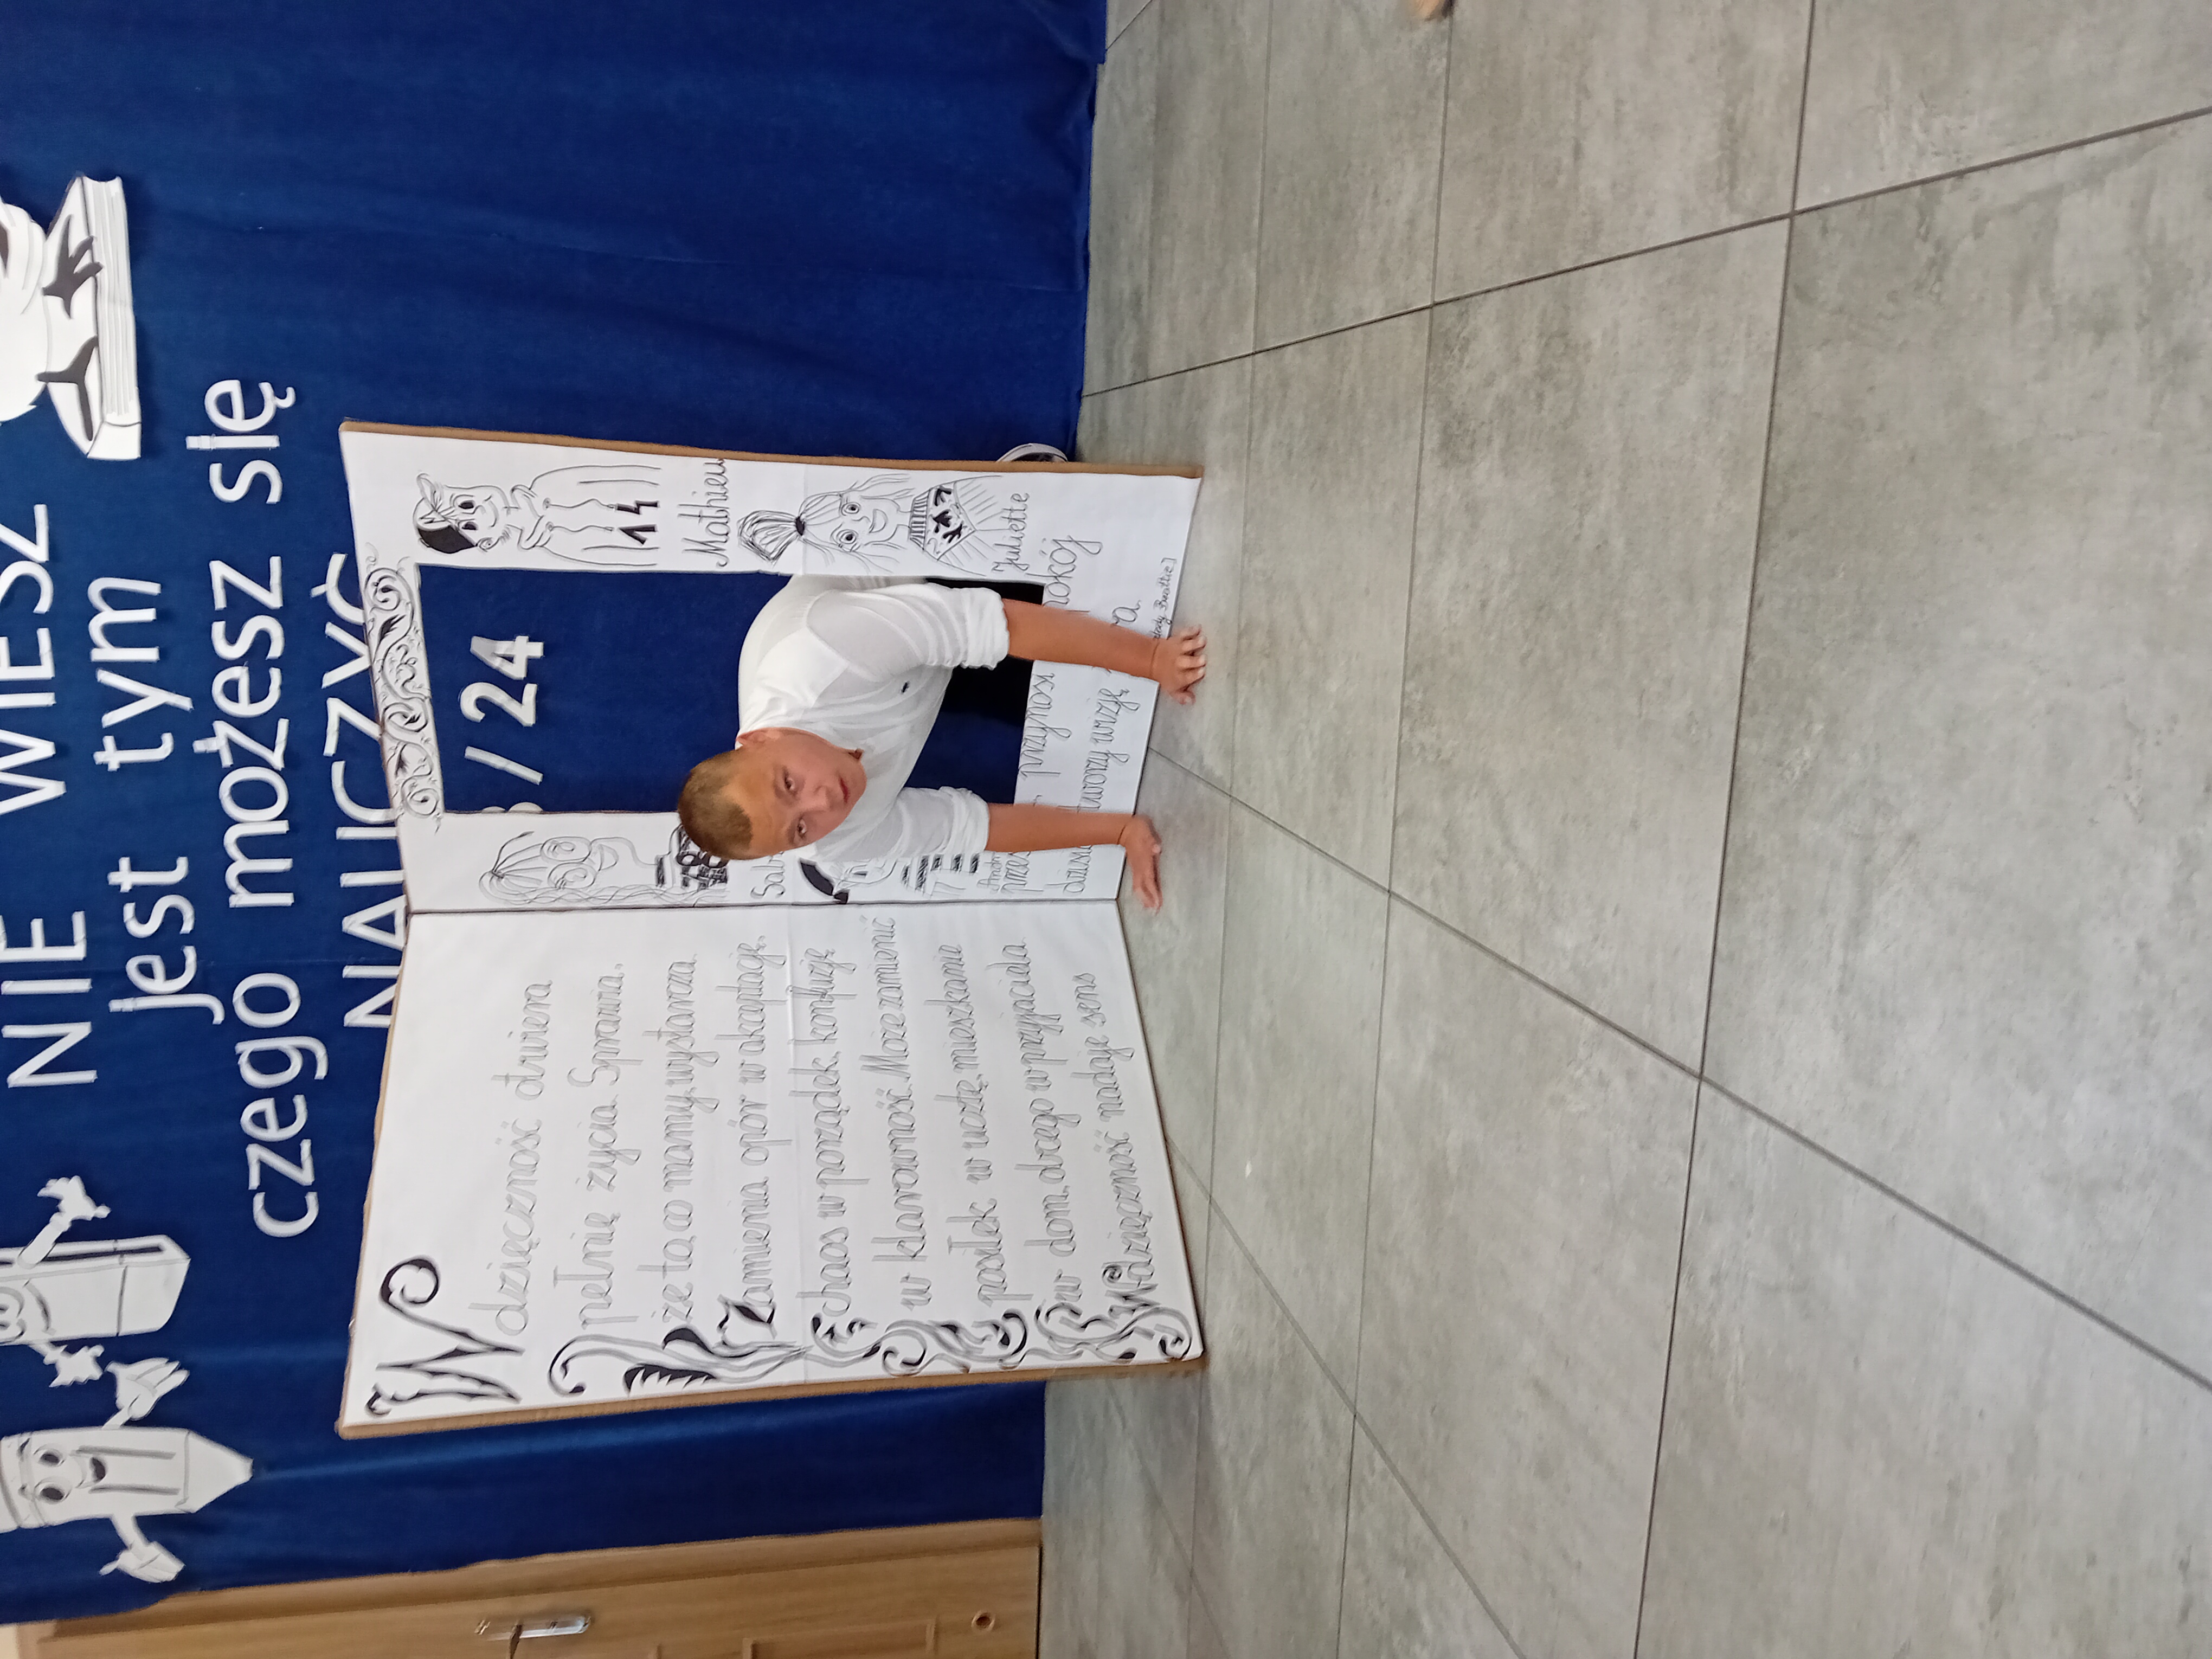 NIE WIESZ
jest tym
czego możesz się
NAUCZYĆ
/ 24
Wdzięczność otwiera
pełnię życia. Sprawia,
że to, co mamy, wystarza.
Zamienia opór w akceptację,
chaos w porządek, konfuzję
w klarowność. Może zamienić
posiłek w ucztę, mieszkanie
w dom, obcego w przyjaciela.
Wdzięczność nadaje sens
Mathieu
Juliette